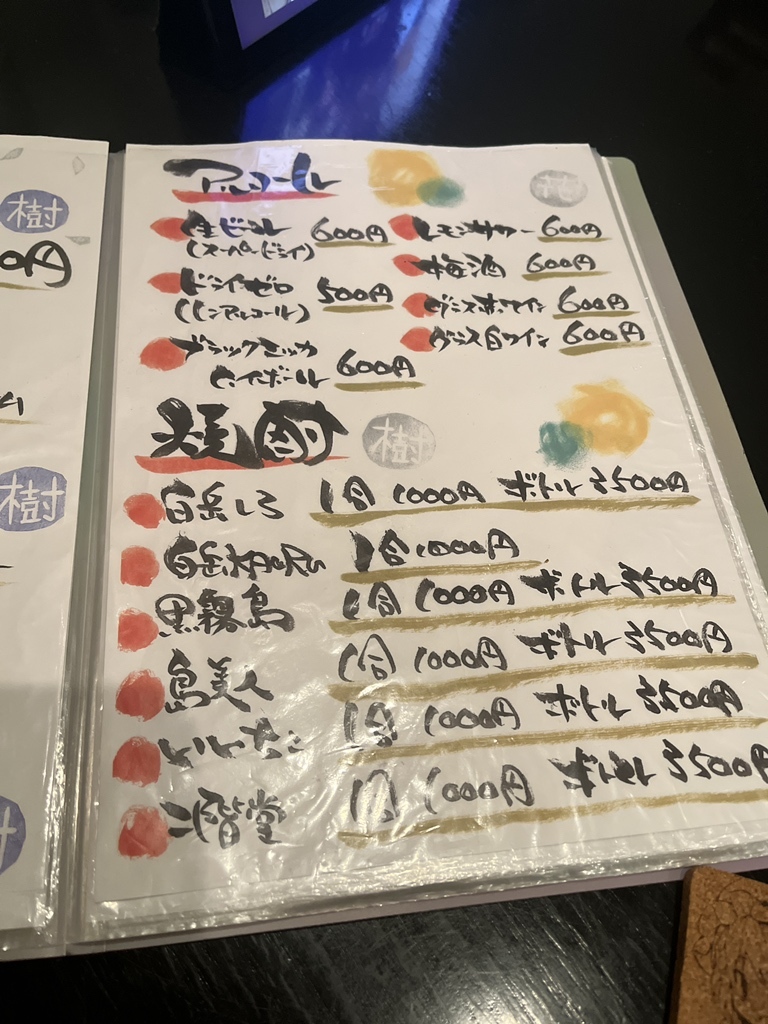 樹
円
樹
アルコール
樹
生ビール 600円
(スーパードライ)
ドライゼロ 500円
(ノンアルコール)
ブラックニッカ
ハイボール 600円
レモンサワー 600円
梅酒 600円
グラス赤ワイン 600円
グラス白ワイン 600円
焼酎
樹
白岳しろ 1合 1000円 ボトル 3500円
白岳 1合 1000円
黒霧島 1合 1000円 ボトル 3500円
島美人 1合 1000円 ボトル 3500円
1合 1000円 ボトル 3500円
二階堂 1合 1000円 ボトル 3500円